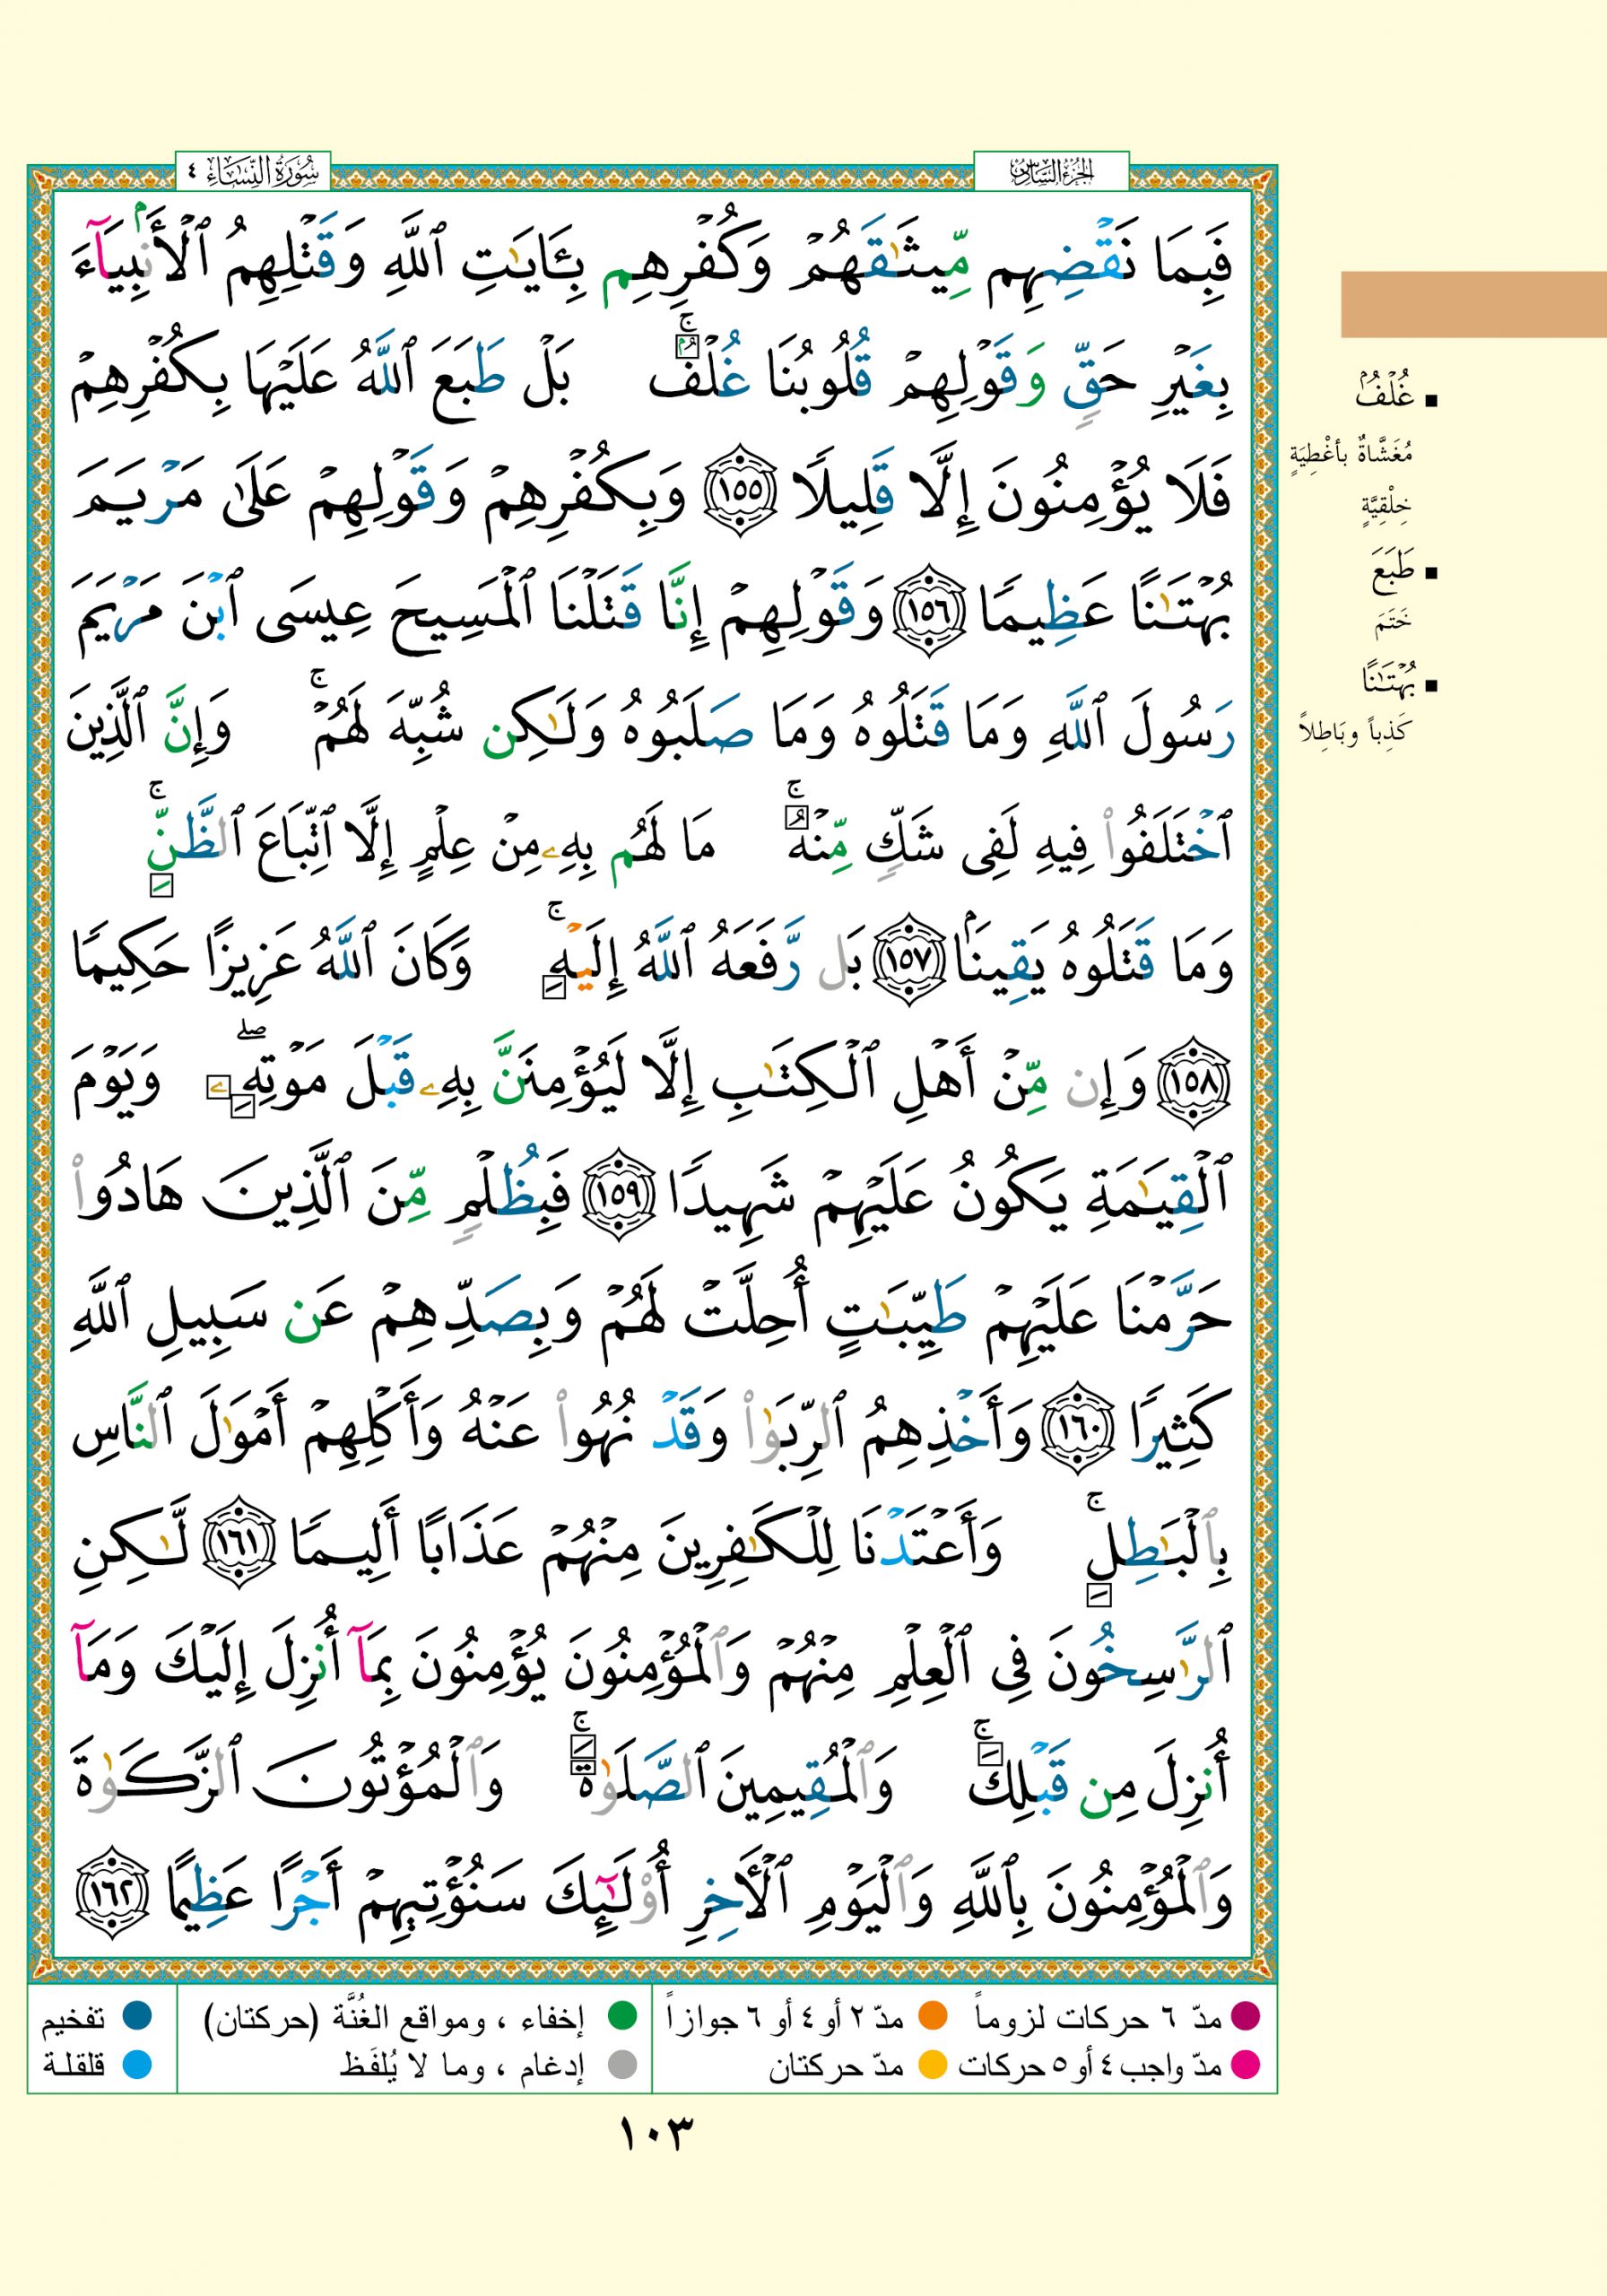 الجزء السادس
سورة النساء ٤
فَبِمَا نَقْضِهِم مِّيثَٰقَهُمْ وَكُفْرِهِم بِـَٔايَٰتِ ٱللَّهِ وَقَتْلِهِمُ ٱلْأَنۢبِيَآءَ
بِغَيْرِ حَقٍّ وَقَوْلِهِمْ قُلُوبُنَا غُلْفٌۢ ۚ بَلْ طَبَعَ ٱللَّهُ عَلَيْهَا بِكُفْرِهِمْ
فَلَا يُؤْمِنُونَ إِلَّا قَلِيلًا ١٥٥ وَبِكُفْرِهِمْ وَقَوْلِهِمْ عَلَىٰ مَرْيَمَ
بُهْتَٰنًا عَظِيمًا ١٥٦ وَقَوْلِهِمْ إِنَّا قَتَلْنَا ٱلْمَسِيحَ عِيسَى ٱبْنَ مَرْيَمَ
رَسُولَ ٱللَّهِ وَمَا قَتَلُوهُ وَمَا صَلَبُوهُ وَلَٰكِن شُبِّهَ لَهُمْ ۚ وَإِنَّ ٱلَّذِينَ
ٱخْتَلَفُوا۟ فِيهِ لَفِى شَكٍّ مِّنْهُ ۚ مَا لَهُم بِهِۦ مِنْ عِلْمٍ إِلَّا ٱتِّبَاعَ ٱلظَّنِّ ۚ
وَمَا قَتَلُوهُ يَقِينًۢا ١٥٧ بَل رَّفَعَهُ ٱللَّهُ إِلَيْهِ ۚ وَكَانَ ٱللَّهُ عَزِيزًا حَكِيمًا
١٥٨ وَإِن مِّنْ أَهْلِ ٱلْكِتَٰبِ إِلَّا لَيُؤْمِنَنَّ بِهِۦ قَبْلَ مَوْتِهِۦ ۖ وَيَوْمَ
ٱلْقِيَٰمَةِ يَكُونُ عَلَيْهِمْ شَهِيدًا ١٥٩ فَبِظُلْمٍ مِّنَ ٱلَّذِينَ هَادُوا۟
حَرَّمْنَا عَلَيْهِمْ طَيِّبَٰتٍ أُحِلَّتْ لَهُمْ وَبِصَدِّهِمْ عَن سَبِيلِ ٱللَّهِ
كَثِيرًا ١٦٠ وَأَخْذِهِمُ ٱلرِّبَوٰا۟ وَقَدْ نُهُوا۟ عَنْهُ وَأَكْلِهِمْ أَمْوَٰلَ ٱلنَّاسِ
بِٱلْبَٰطِلِ ۚ وَأَعْتَدْنَا لِلْكَٰفِرِينَ مِنْهُمْ عَذَابًا أَلِيمًا ١٦١ لَّٰكِنِ
ٱلرَّٰسِخُونَ فِى ٱلْعِلْمِ مِنْهُمْ وَٱلْمُؤْمِنُونَ يُؤْمِنُونَ بِمَآ أُنزِلَ إِلَيْكَ وَمَآ
أُنزِلَ مِن قَبْلِكَ ۚ وَٱلْمُقِيمِينَ ٱلصَّلَوٰةَ ۚ وَٱلْمُؤْتُونَ ٱلزَّكَوٰةَ
وَٱلْمُؤْمِنُونَ بِٱللَّهِ وَٱلْيَوْمِ ٱلْأَخِرِ أُو۟لَٰٓئِكَ سَنُؤْتِيهِمْ أَجْرًا عَظِيمًا ١٦٢
▪ غُلْفٌۢ
مُغَشَّاةٌ بأغْطِيَةٍ
خِلْقِيَّةٍ
▪ طَبَعَ
خَتَمَ
▪ بُهْتَٰنًا
كَذِباً وبَاطِلاً
مدّ ٦ حركات لزوماً مدّ ٢ أو ٤ أو ٦ جوازاً إخفاء ، ومواقع الغُنَّة (حركتان) تفخيم
مدّ واجب ٤ أو ٥ حركات مدّ حركتان إدغام ، وما لا يُلفَظ قلقلة
١٠٣